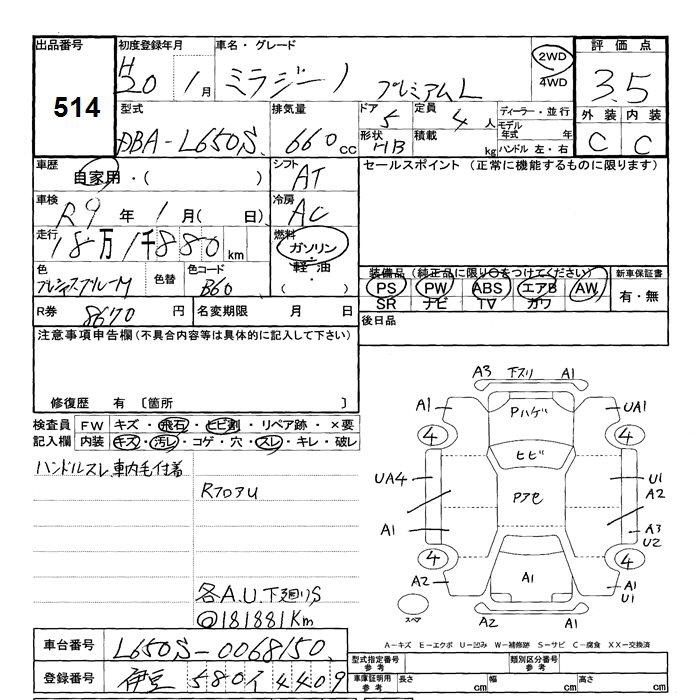 出品番号 初度登録年月 車名・グレード 評価点
514 H20 1月 ミラジーノ プレミアムL 2WD 4WD 3.5
型式 排気量 ドア 定員 ディーラー・並行 外装 内装
DBA-L650S 660cc 5 4人 モデル年式 年 C C
形状 HB 積載 kg ハンドル 左・右
車歴 自家用・( ) シフト AT セールスポイント (正常に機能するものに限ります)
車検 R9年 1月( 日) 冷房 AC
走行 18万1千880km 燃料 ガソリン・軽油・( )
色 プレシャスブルーM 色替 色コード B60
装備品(純正品に限り○をつけてください) 新車保証書
PS PW ABS エアB AW 有・無
SR ナビ TV カワ
R券 8670円 名変期限 月 日 後日品
注意事項申告欄(不具合内容等は具体的に記入して下さい)
修復歴 有 〔箇所 〕
検査員 FW キズ・飛石・ヒビ割・リペア跡・×要
記入欄 内装 キズ・汚レ・コゲ・穴・スレ・キレ・破レ
ハンドルスレ 車内毛付着
RフロアU
各A.U.下廻りS
@181881Km
A3 下スリ A1
A1 Pハゲ UA1
4 4
ヒビ
UA4 PアセU1
A2
A1 A3
U2
4 4
A2 A1 A1
U1
スペア A2 A1
A-キズ E-エクボ U-凹み W-補修跡 S-サビ C-腐食 XX-交換済
車台番号 L650S-0068150
型式指定番号 参考 類別区分番号 参考
登録番号 伊豆 580 イ 4409
車庫証明用 参考 長さ cm 幅 cm 高さ cm